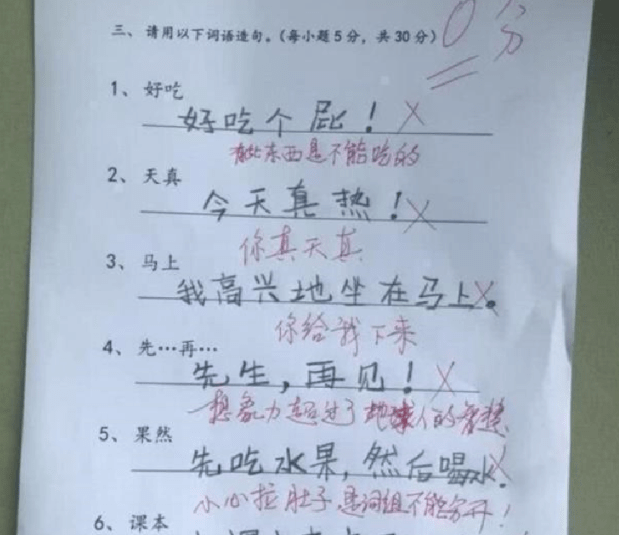 三、请用以下词语造句。(每小题5分,共30分) 0分
1、好吃
好吃个屁!×
有些东西是不能吃的
2、天真
今天真热!×
你真天真
3、马上
我高兴地坐在马上。×
你给我下来
4、先…再…
先生,再见!×
想象力超过了地球人的智慧
5、果然
先吃水果,然后喝水.×
小心拉肚子,是词组不能分开!
6、课本